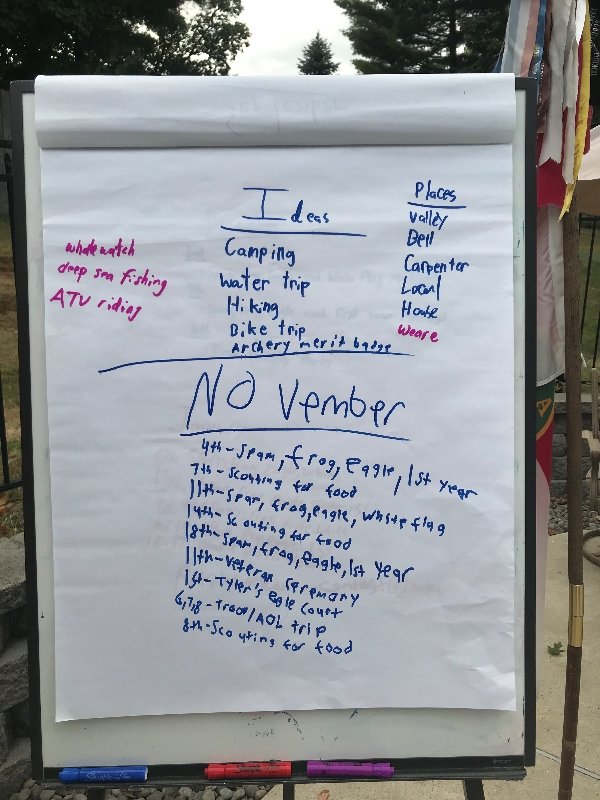 Ideas
Camping
water trip
Hiking
Bike trip
Archery merit badge
Places
Valley
Bell
Carpenter
Local
House
Weare
whale watch
deep sea fishing
ATV riding
NOvember
4th-Spam, frog, eagle, 1st year
7th-Scouting for food
11th-Spam, frog, eagle, white flag
14th-Scouting for food
18th-Spam, frog, eagle, 1st year
11th-Veteran Ceremany
1st-Tyler's Eagle Court
6,7,8-Troop/AOL trip
8th-Scouting for food